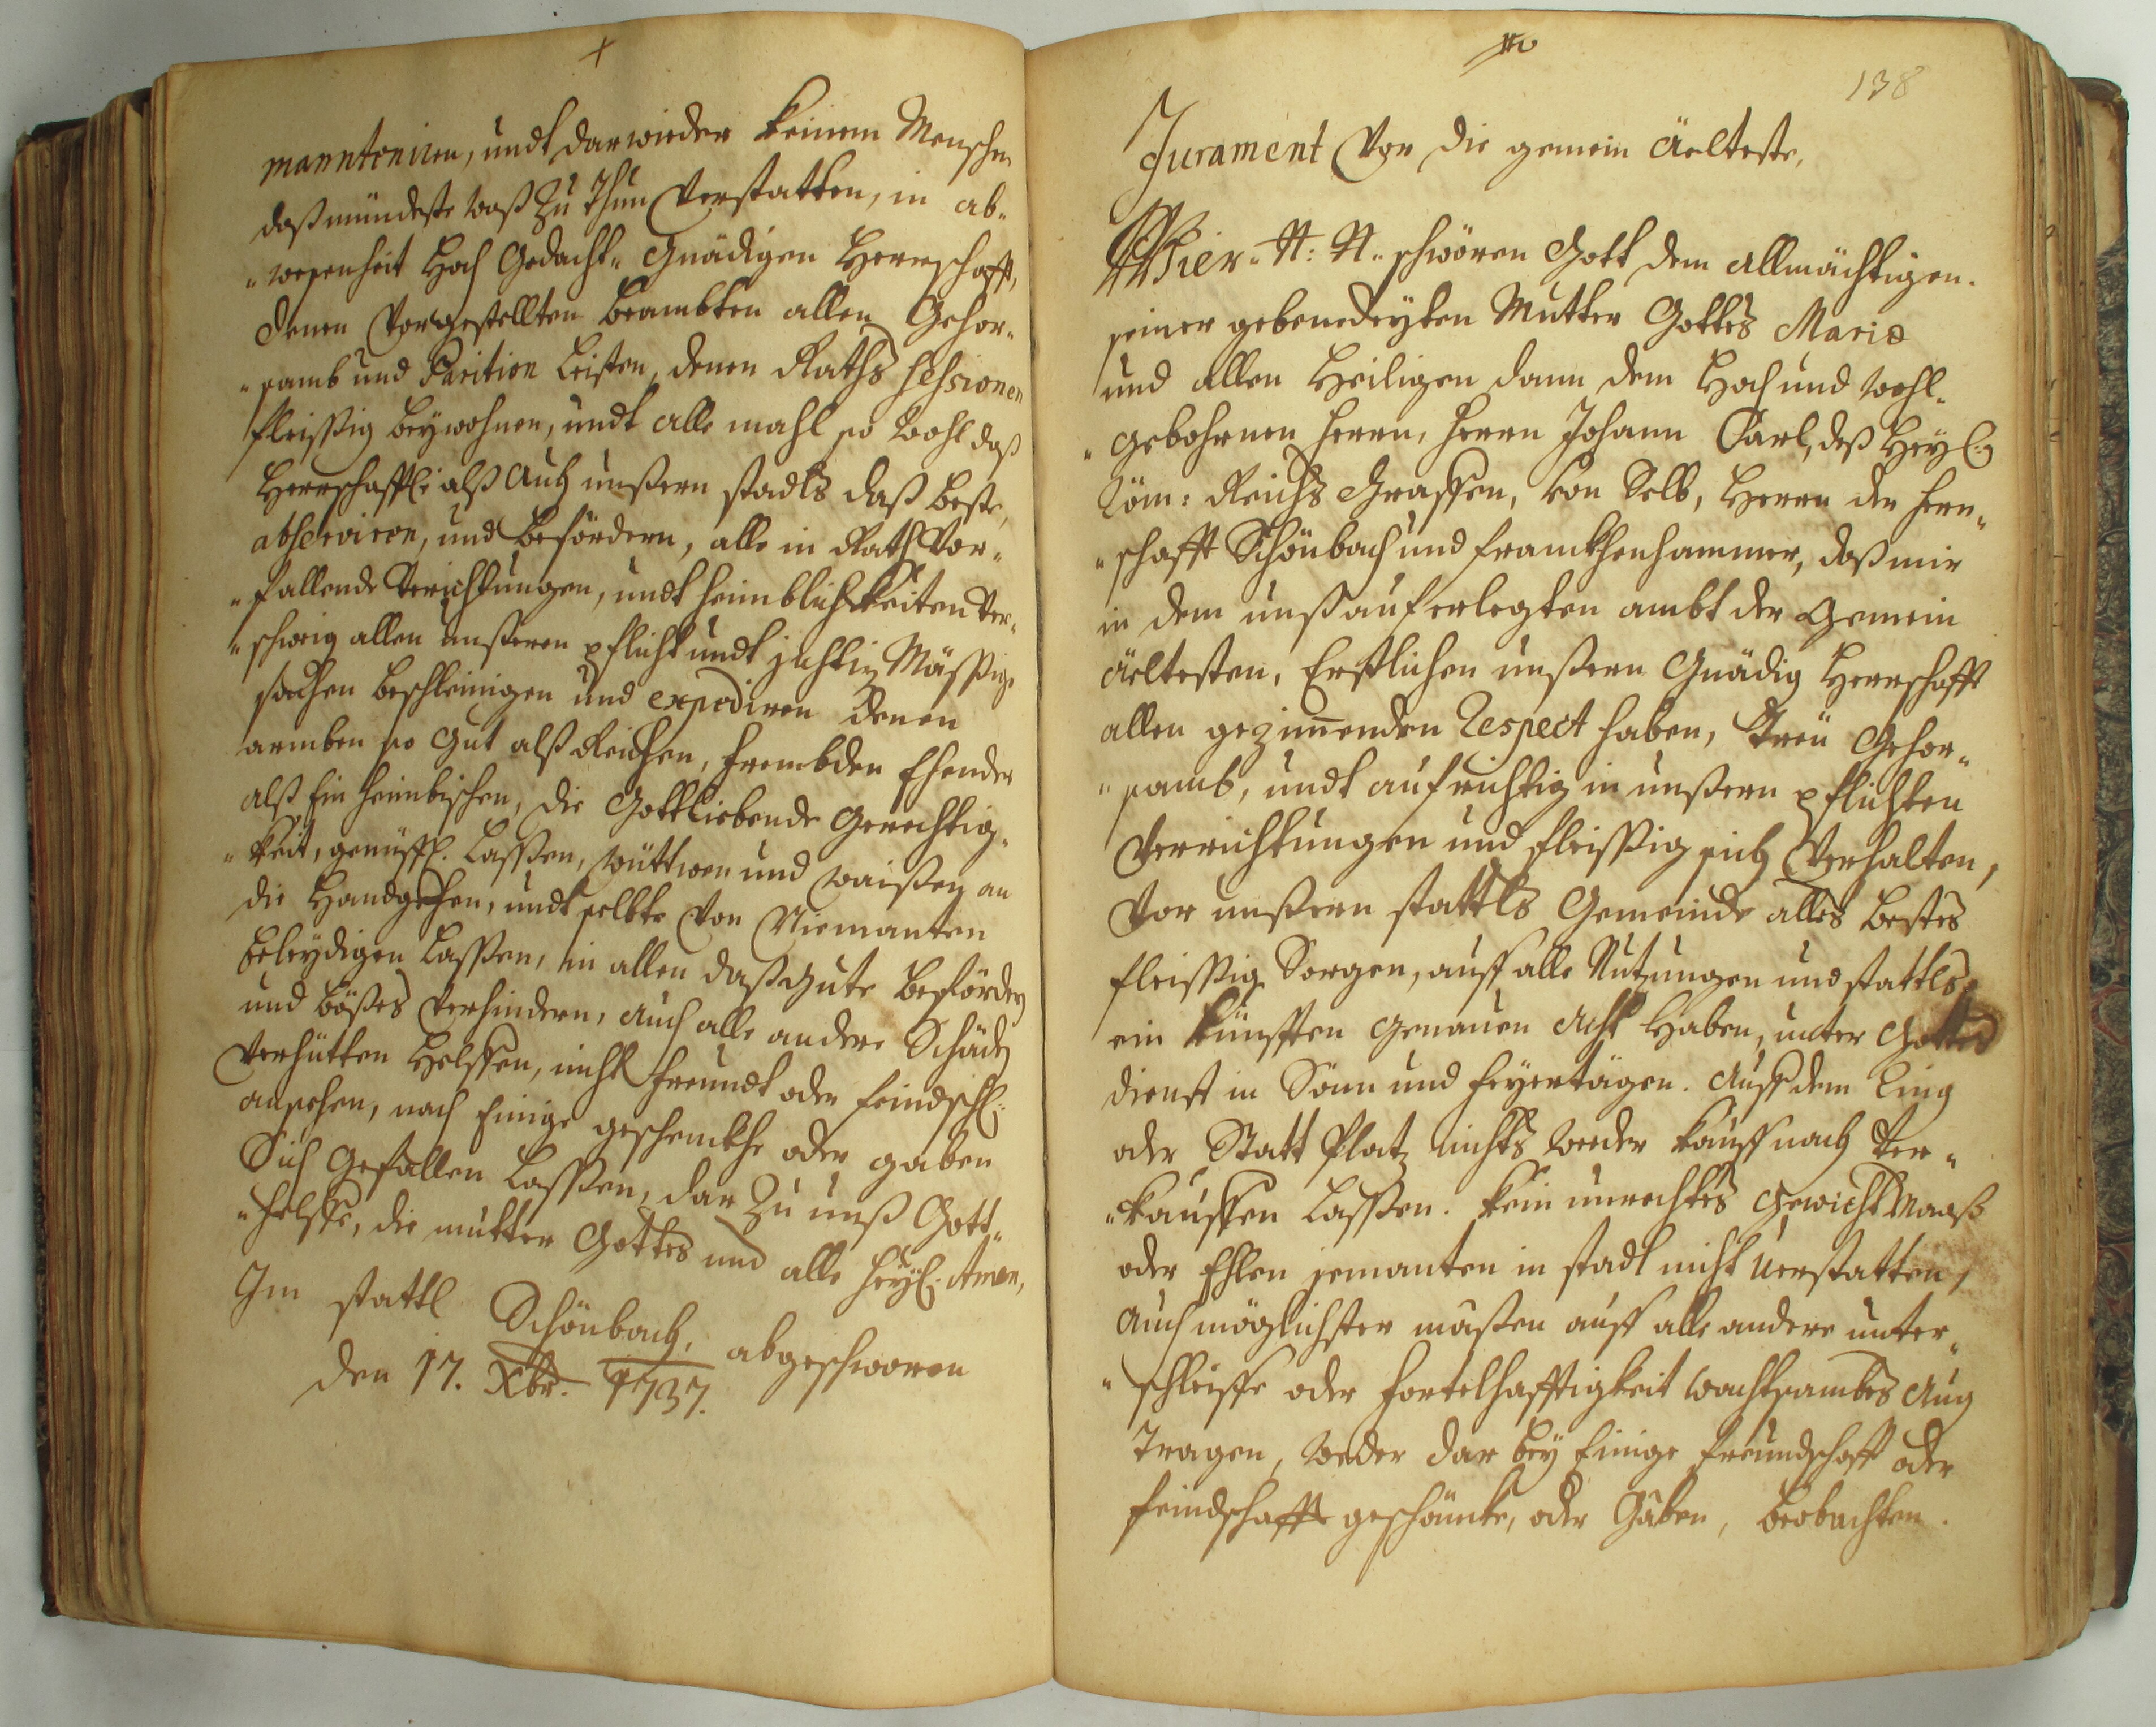 mannteniren, undt darwieder keinem Menschen
daß mündeste waß zu thun verstatten, in ab„
„wesenheit Hoch Gedacht„ Gnädigen Herrschafft,
denen Vorgestellten Beambten allen Gehor„
„samb und Parition Leisten, denen Raths Sessionen
fleissig beywohnen, undt alle mahl so wohl daß
Herrschafftl: alß auch unßern stadtls daß beste,
observiren, und befördern, alle in Rath vor„
„fallende Verichtungen, undt heimblichkeiten ver„
„schwig allen unßeren pflicht undt  Mässige
sachen beschleinigen und expediren denen
armben so gut alß Reichen, frembden Ehender
alß Ein heimbischen, die Gottliebende Gerechtig„
„keit, genüssl. Lassen, wüttwen und waißen an
die Handgehen, undt selbte von Niemanten
beleydigen Lassen, in allen daß gute befördern
und bößes verhindern, auch alle andere Schäden
verhütten Helffen, nicht freundt oder feindschl:
ansehen, noch Einige geschenkhe oder gaben
Sich Gefallen Lassen, dar zu unß Gott„
„helffe, die mutter Gottes und alle Heyl: Amen,
Im stattl Schönbach, abgeschworen
den 17. Xbr. 1737.
138
Jurament Vor die gemein Äelteste,
Wier„ N: N„ schwören Gott dem allmächtigen.
seiner gebenedeyten Mutter Gottes Mariæ
und allen Heiligen dann dem Hoch und wohl„
„gebohrnen Herrn, Herrn Johann Carl, deß Heyl:
Röm: Reichs Graffen, von Selb, Herrn der Herr„
„schafft Schönbach und franckhenhammer, daß mir
in dem unß auferlegten ambt der gemein
Äeltesten, Erstlichen unßern Gnädig Herrschafft
allen gezimenden Respect haben, Treu Gehor„
„samb, undt aufrichtig in unßern pflichten
Verrichtungen und fleissig sich verhalten,
Vor unßern stattls Gemeinde alles bestes
fleissig Sorgen, auff alle Nutzungen und stattls
ein künfften genauen acht Haben, unter Gottes
dienst in Sonn und feyertägen. Auff dem Ring
oder Statt Platz nichts weder kauff noch ver„
„kauffen Lassen. kein unrechtes gewicht Maaß
oder Ehlen jemanten in stadt nicht verstatten,
auch möglichster maßen auff alle andere unter„
„schleiffe oder fortelhafftigkeit wachtsambes Aug
Tragen, weder dar bey Einige freundschafft oder
feindschafft geschänke, oder Gaben, beobachten.